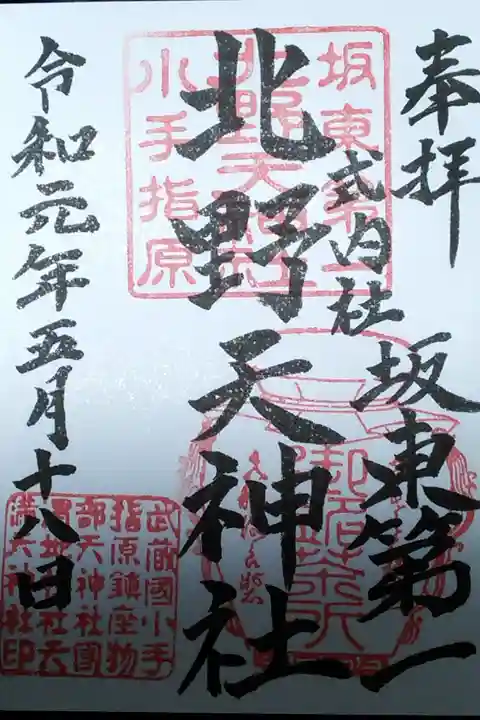 奉拝
式内社
坂東第一
北野天神社
令和元年五月十八日
坂東第一
北野天神社
小手指原
武蔵國小手
指原鎮座物
部天神社國